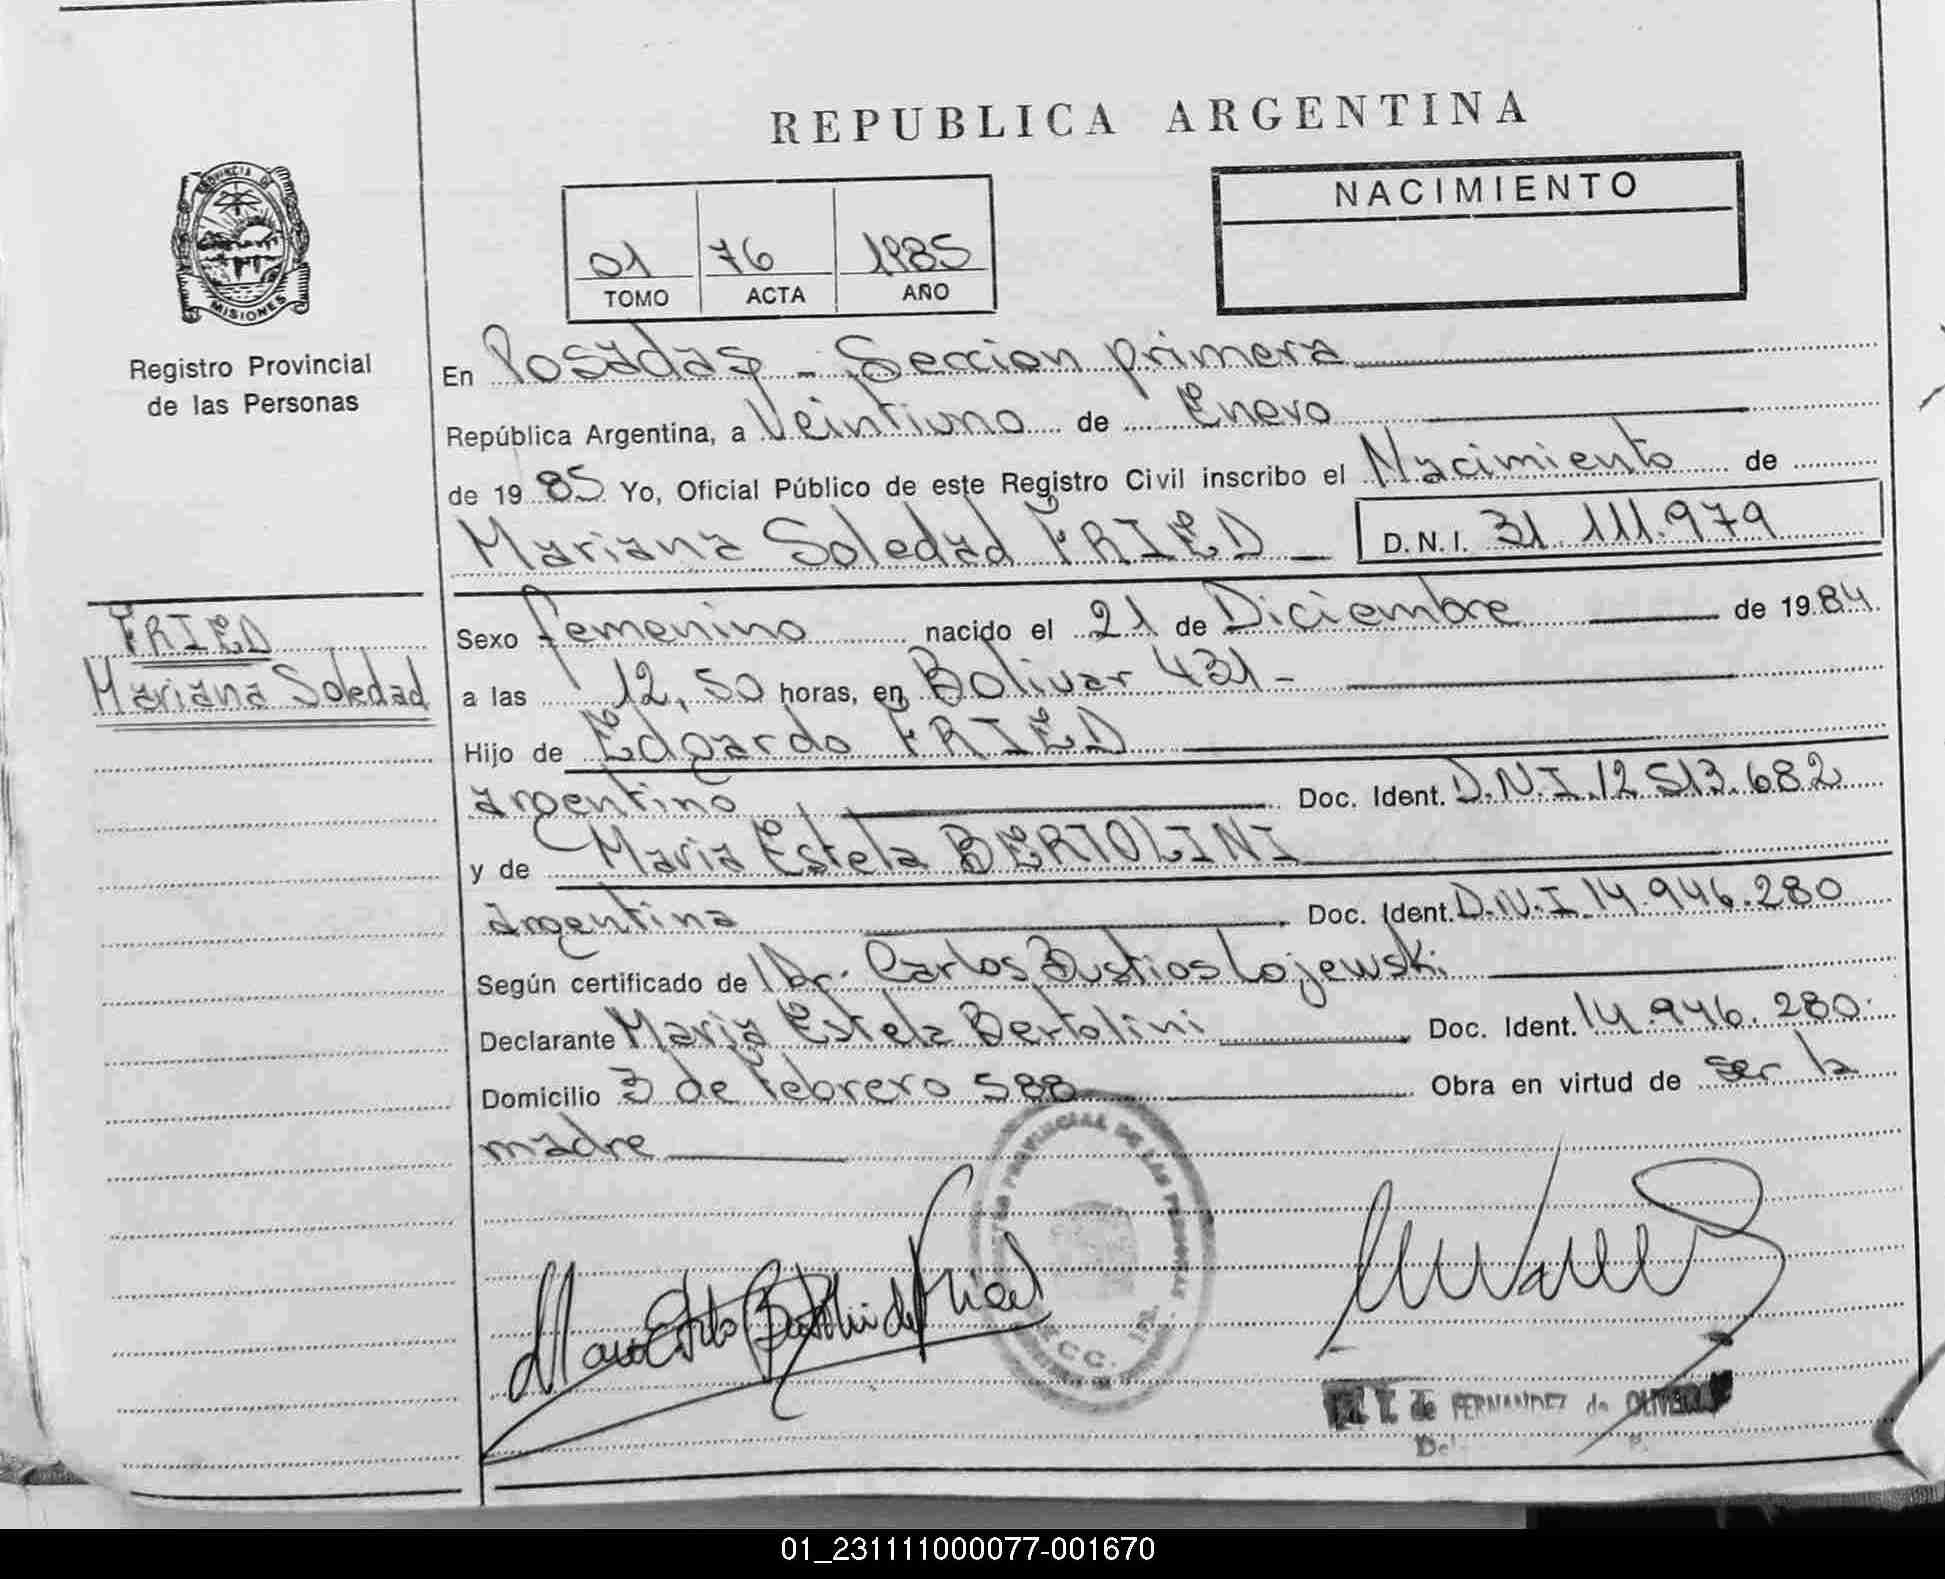 REPUBLICA ARGENTINA
PROVINCIA DE
MISIONES
Registro Provincial
de las Personas
01 76 1985
TOMO ACTA AÑO
NACIMIENTO
En Posadas - Sección primera
República Argentina, a Veintiuno de Enero
de 1985 Yo, Oficial Público de este Registro Civil inscribo el Nacimiento de
Mariana Soledad FRIED D.N.I. 31.111.979
FRIED
Mariana Soledad
Sexo femenino nacido el 21 de Diciembre de 1984
a las 12,50 horas, en Bolivar 431-
Hijo de Edgardo FRIED
argentino Doc. Ident. D.N.I.12.513.682
y de Maria Estela BERTOLINI
argentina Doc. Ident. D.N.I.14.946.280
Según certificado de Dr. Carlos Bustios Lojewski
Declarante Maria Estela Bertolini Doc. Ident. 14.946.280
Domicilio 3 de febrero 588 Obra en virtud de ser la
madre
PROVINCIAL DE LAS PERSONAS
Maria Estela Bertolini de Fried
T. de FERNANDEZ de OLIVEIRA
01_231111000077-001670